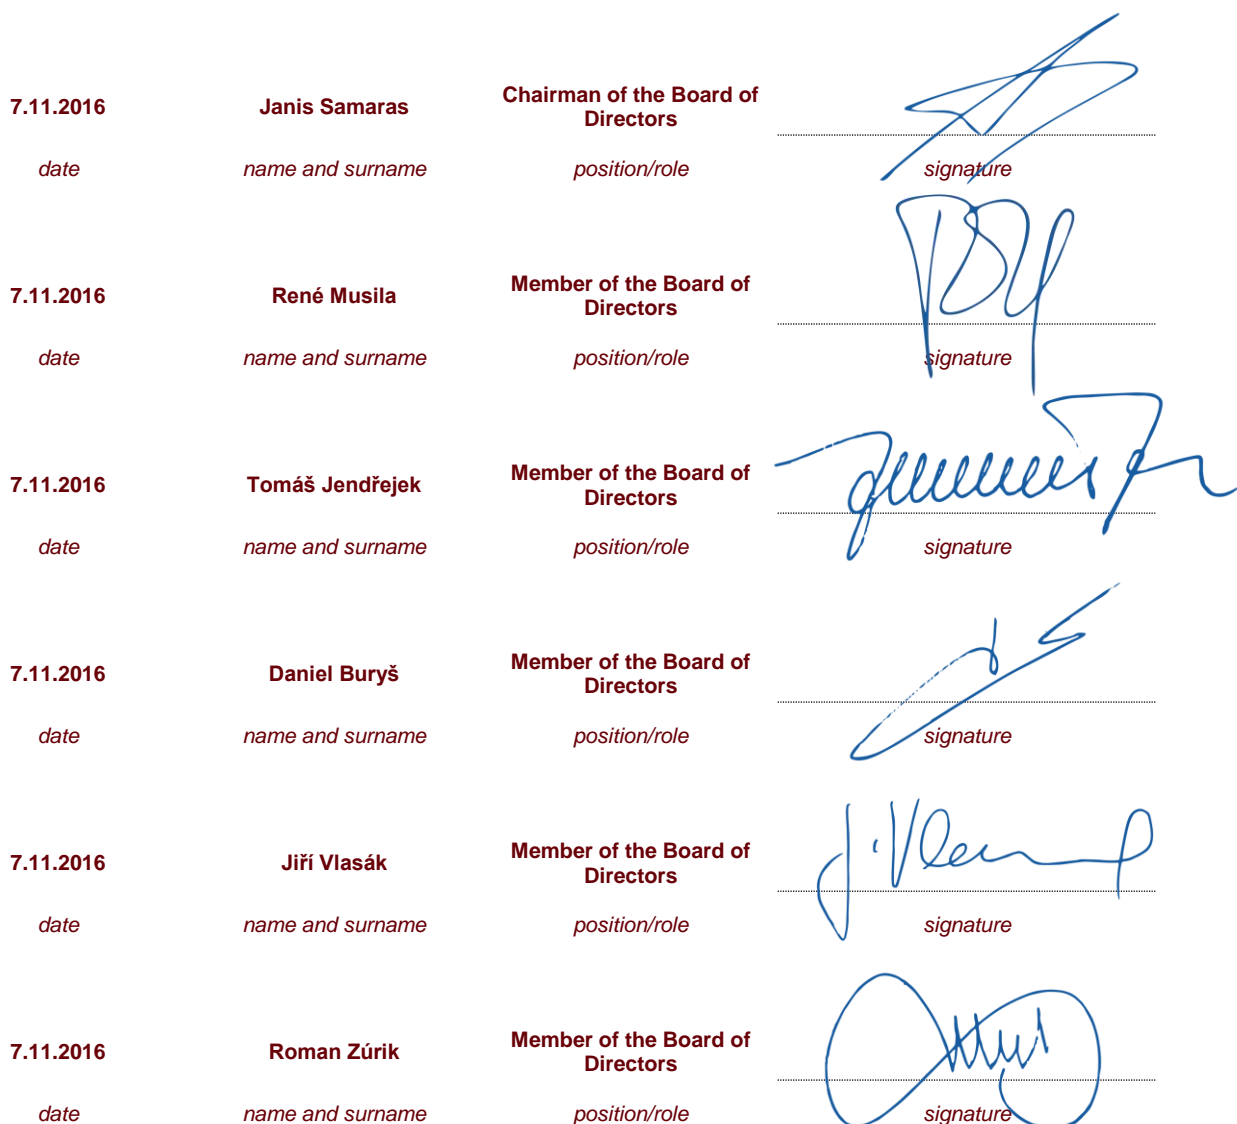 7.11.2016 Janis Samaras Chairman of the Board of
Directors
date name and surname position/role signature
7.11.2016 René Musila Member of the Board of
Directors
date name and surname position/role signature
7.11.2016 Tomáš Jendřejek Member of the Board of
Directors
date name and surname position/role signature
7.11.2016 Daniel Buryš Member of the Board of
Directors
date name and surname position/role signature
7.11.2016 Jiří Vlasák Member of the Board of
Directors
date name and surname position/role signature
7.11.2016 Roman Zúrik Member of the Board of
Directors
date name and surname position/role signature